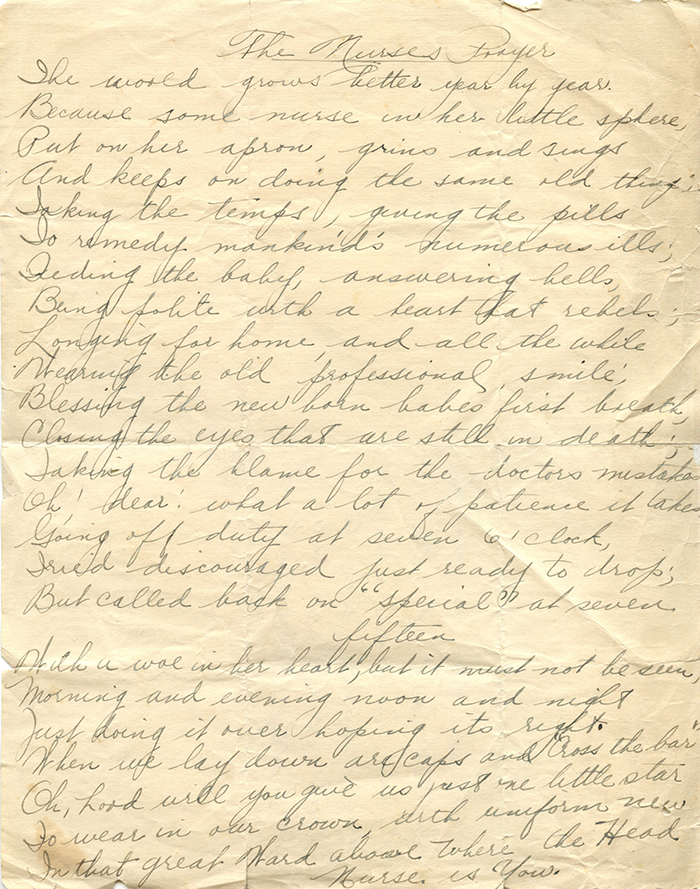 The Nurses Prayer
The world grows better year by year.
Because some nurse in her little sphere,
Put on her apron, grins and sings
And keeps on doing the same old thing;
Taking the temps, giving the pills
To remedy mankind's numerous ills;
Feding the baby, answering bells,
Being polite with a heart that rebels;
Longing for home and all the while
Wearing the old professional smile,
Blessing the new born babes first breath,
Closing the eyes that are still in death;
Taking the blame for the doctors mistake
Oh! dear! what a lot of patience it takes
Going off duty at seven o'clock,
Tried discouraged just ready to drop;
But called back on "special" at seven
fifteen
With a woe in her heart, but it must not be seen,
Morning and evening noon and night
Just doing it over hoping its right.
When we lay down are caps and "Cross the bar"
Oh, Lord will you give us just one little star
To wear in our crown, with uniform new
In that great Ward above where the Head
Nurse is You.